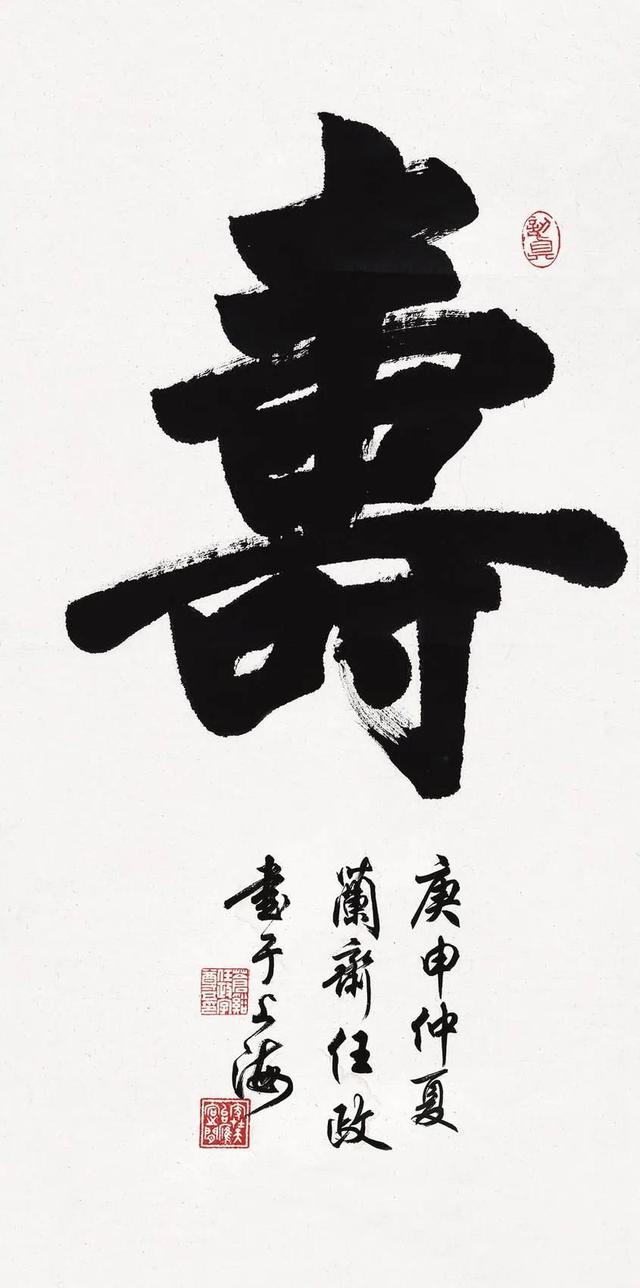 壽
庚申仲夏
蘭齋任政
書于上海